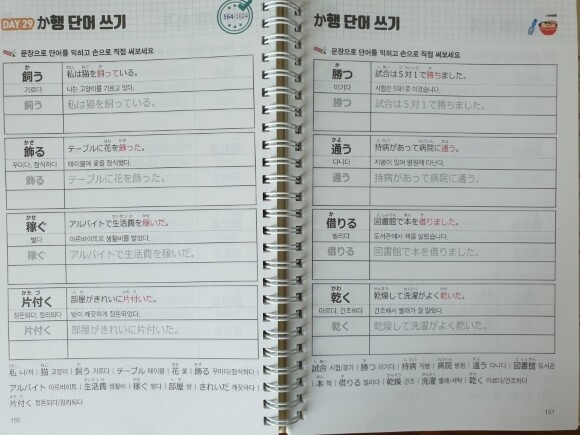 DAY 29 か행 단어 쓰기
564/1024
문장으로 단어를 익히고 손으로 직접 써보세요
か
飼う
기르다
わたし ねこ か
私は猫を飼っている。
나는 고양이를 기르고 있다.
飼う
私は猫を飼っている。
かざ
飾る
꾸미다, 장식하다
はな かざ
テーブルに花を飾った。
테이블에 꽃을 장식했다.
飾る
テーブルに花を飾った。
かせ
稼ぐ
벌다
せいかつ ひ かせ
アルバイトで生活費を稼いだ。
아르바이트로 생활비를 벌었다.
稼ぐ
アルバイトで生活費を稼いだ。
かた づ
片付く
정돈되다, 정리되다
へ や かた づ
部屋がきれいに片付いた。
방이 깨끗하게 정돈되었다.
片付く
部屋がきれいに片付いた。
私 나/저 | 猫 고양이 | 飼う 기르다 | テーブル 테이블 | 花 꽃 | 飾る 꾸미다/장식하다
アルバイト 아르바이트 | 生活費 생활비 | 稼ぐ 벌다 | 部屋 방 | きれいだ 깨끗하다 |
片付く 정돈되다/정리되다
150
か행 단어 쓰기
문장으로 단어를 익히고 손으로 직접 써보세요
か
勝つ
이기다
し あい たい か
試合は5対1で勝ちました。
시합은 5대1로 이겼습니다.
勝つ
試合は5対1で勝ちました。
かよ
通う
다니다
じ びょう びょういん かよ
持病があって病院に通う。
지병이 있어 병원에 다닌다.
通う
持病があって病院に通う。
か
借りる
빌리다
と しょかん ほん か
図書館で本を借りました。
도서관에서 책을 빌렸습니다.
借りる
図書館で本を借りました。
かわ
乾く
마르다, 건조하다
かんそう せんたく かわ
乾燥して洗濯がよく乾いた。
건조해서 빨래가 잘 말랐다.
乾く
乾燥して洗濯がよく乾いた。
試合 시합/경기 | 勝つ 이기다 | 持病 지병 | 病院 병원 | 通う 다니다 | 図書館 도서관
| 本 책 | 借りる 빌리다 | 乾燥 건조 | 洗濯 빨래/세탁 | 乾く 마르다/건조하다
151